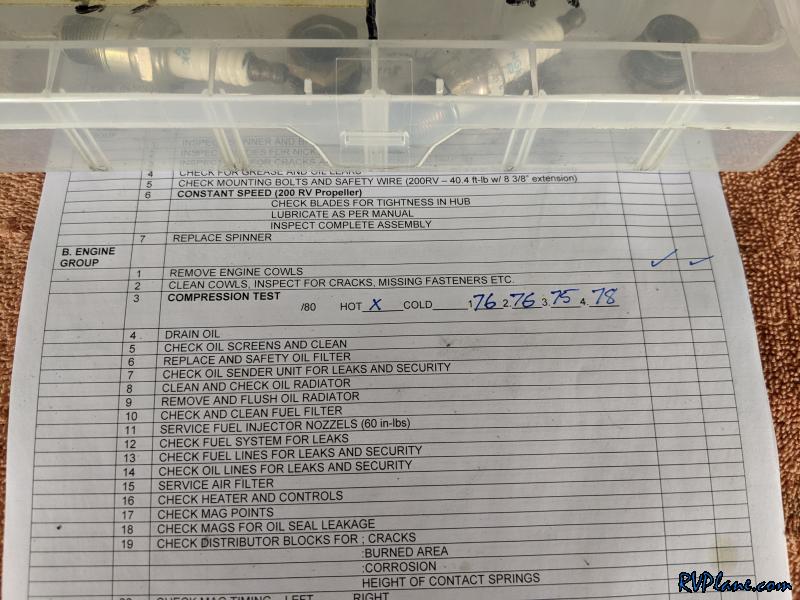 INSPECT SPINNER AND B
4 CHECK FOR GREASE AND OIL LEAKS
5 CHECK MOUNTING BOLTS AND SAFETY WIRE (200RV – 40.4 ft-lb w/ 8 3/8" extension)
6 CONSTANT SPEED (200 RV Propeller)
CHECK BLADES FOR TIGHTNESS IN HUB
LUBRICATE AS PER MANUAL
INSPECT COMPLETE ASSEMBLY
7 REPLACE SPINNER
B. ENGINE
GROUP
1 REMOVE ENGINE COWLS
2 CLEAN COWLS, INSPECT FOR CRACKS, MISSING FASTENERS ETC.
3 COMPRESSION TEST
/80 HOT X COLD 1. 76 2. 76 3. 75 4. 78
4 DRAIN OIL
5 CHECK OIL SCREENS AND CLEAN
6 REPLACE AND SAFETY OIL FILTER
7 CHECK OIL SENDER UNIT FOR LEAKS AND SECURITY
8 CLEAN AND CHECK OIL RADIATOR
9 REMOVE AND FLUSH OIL RADIATOR
10 CHECK AND CLEAN FUEL FILTER
11 SERVICE FUEL INJECTOR NOZZELS (60 in-lbs)
12 CHECK FUEL SYSTEM FOR LEAKS
13 CHECK FUEL LINES FOR LEAKS AND SECURITY
14 CHECK OIL LINES FOR LEAKS AND SECURITY
15 SERVICE AIR FILTER
16 CHECK HEATER AND CONTROLS
17 CHECK MAG POINTS
18 CHECK MAGS FOR OIL SEAL LEAKAGE
19 CHECK DISTRIBUTOR BLOCKS FOR ; CRACKS
:BURNED AREA
:CORROSION
HEIGHT OF CONTACT SPRINGS
20 CHECK MAG TIMING LEFT RIGHT
RVPlane.com